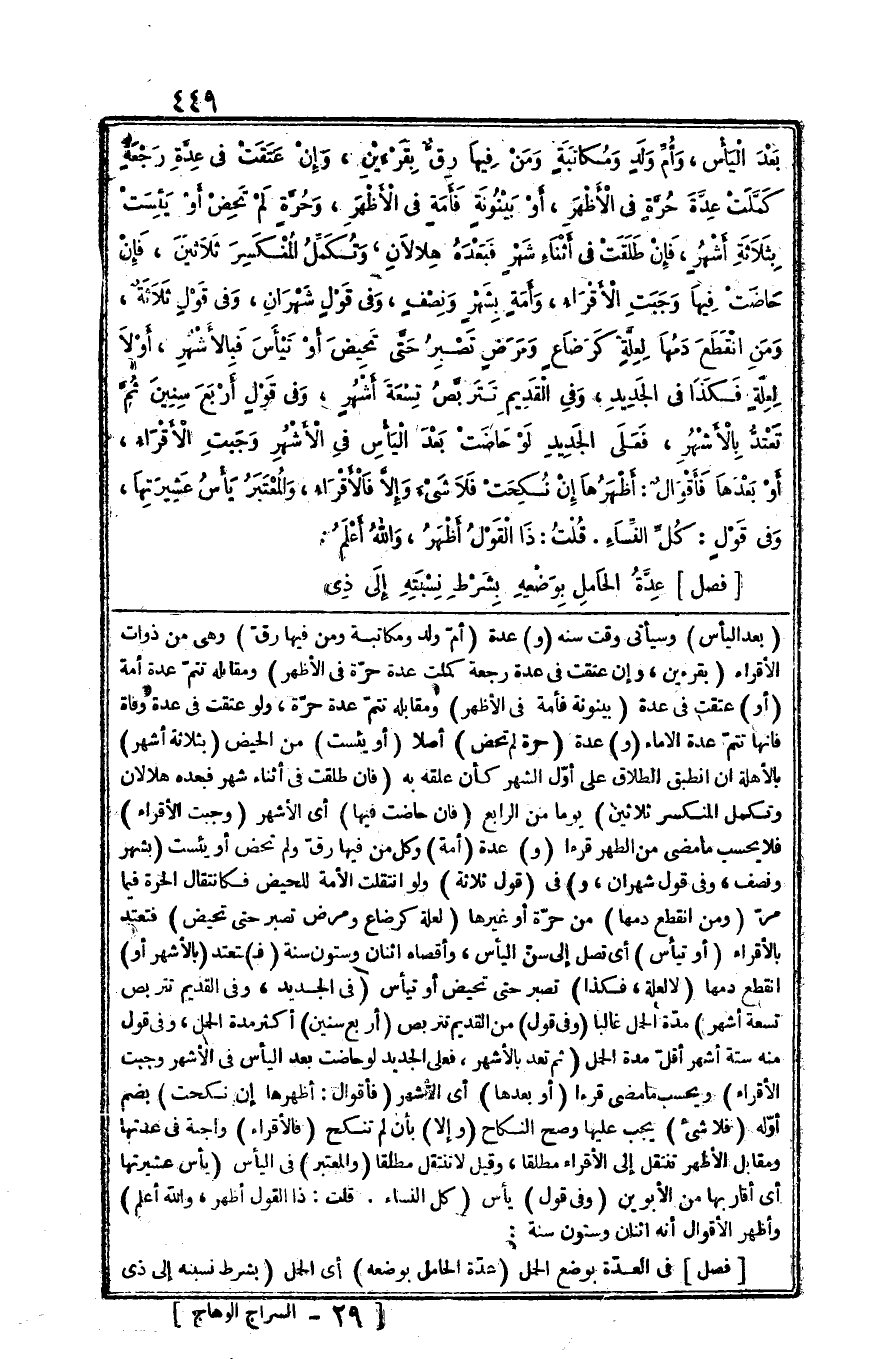 ٤٤٩
بَعْدَ الْيَأْسِ ، وَأُمِّ وَلَدٍ وَمُكَاتَبَةٍ وَمَنْ فِيهَا رِقٌّ بِقَرْءَيْنِ ، وَإِنْ عَتَقَتْ فى عِدَّةِ رَجْعَةٍ
كَمَّلَتْ عِدَّةَ حُرَّةٍ فى الْأَظْهَرِ ، أَوْ بَيْنُونَةٍ فَأَمَةٍ فى الْأَظْهَرِ ، وَحُرَّةٍ لَمْ تَحِضْ أَوْ يَئِسَتْ
بِثَلَاثَةِ أَشْهُرٍ ، فَإِنْ طَلَقَتْ فى أَثْنَاءِ شَهْرٍ فَبَعْدَهُ هِلَالَانِ ، وَتُكَمِّلُ الْمُنْكَسِرَ ثَلَاثِينَ ، فَإِنْ
حَاضَتْ فِيهَا وَجَبَتِ الْأَقْرَاءِ ، وَأَمَةٍ بِشَهْرٍ وَنِصْفٍ ، وَفى قَوْلٍ شَهْرَانِ ، وَفى قَوْلٍ ثَلَاثَةٌ ،
وَمَنِ انْقَطَعَ دَمُهَا لِعِلَّةٍ كَرَضَاعٍ وَمَرَضٍ تَصْبِرُ حَتَّى تَحِيضَ أَوْ تَيْأَسَ فَبِالأَشْهُرِ ، أَوْلاَ
لِعِلَّةٍ فَكَذَا فى الْجَدِيدِ ، وَفِي الْقَدِيمِ تَتَرَبَّصُ تِسْعَةَ أَشْهُرٍ ، وَفى قَوْلٍ أَرْبَعَ سِنِينَ ثُمَّ
تَعْتَدُّ بِالْأَشْهُرِ ، فَعَلَى الْجَدِيدِ لَوْ حَاضَتْ بَعْدَ الْيَأْسِ فِي الْأَشْهُرِ وَجَبَتِ الْأَقْرَاءِ ،
أَوْ بَعْدَهَا فَأَقْوَالٌ : أَظْهَرُهَا إِنْ نُكِحَتْ فَلَا شَىْءَ وَإِلَّا فَالْأَقْرَاءِ ، وَالْمُعْتَبَرُ يَأْسُ عَشِيرَتِهَا ،
وَفى قَوْلٍ : كُلِّ النِّسَاءِ . قُلْتُ : ذَا الْقَوْلُ أَظْهَرُ ، وَاللهُ أَعْلَمُ :
[ فصل ] عِدَّةُ الحَامِلِ بِوَضْعِهِ بِشَرْطِ نِسْبَتِهِ إِلَى ذِى
( بعد اليأس ) وسيأتى وقت سنه (و) عدة (أمّ ولد ومكاتبة ومن فيها رقّ ) وهى من ذوات
الأقراء ( بقرءين ، وإن عتقت فى عدة رجعة كملت عدة حرّة فى الأظهر ) ومقابله تتمّ عدة أمة
(أو) عتقت فى عدة ( بينونة فأمة فى الأظهر ) ومقابله تتمّ عدة حرّة ، ولو عتقت فى عدة وفاة
فانها تتمّ عدة الاماء (و) عدة (حرة لم تحض ) أصلا ( أو يئست ) من الحيض (بثلاثة أشهر )
بالأهلة ان انطبق الطلاق على أوّل الشهر كأن علقه به ( فان طلقت فى أثناء شهر فبعده هلالان
وتكمل المنكسر ثلاثين ) يوما من الرابع ( فان حاضت فيها ) أى الأشهر ( وجبت الأقراء )
فلا يحسب مامضى من الطهر قرءا ( و ) عدة (أمة ) وكل من فيها رقّ ولم تحض أو يئست (بشهر
ونصف ، وفى قول شهران ، و ) فى ( قول ثلاثة ) ولو انتقلت الأمة للحيض فكانتقال الحرة فيما
مرّ ( ومن انقطع دمها ) من حرّة أو غيرها ( لعلة كرضاع ومرض تصبر حتى تحيض ) فتعتد
بالأقراء ( أو تيأس ) أى تصل إلى سنّ اليأس ، وأقصاه اثنان وستون سنة ( فـ)تعتد (بالأشهر أو)
انقطع دمها ( لالعلة ، فكذا ) تصبر حتى تحيض أو تيأس ( فى الجديد ، وفى القديم تتربص
تسعة أشهر ) مدّة الحمل غالبا ( وفى قول ) من القديم تتربص (أربع سنين ) أكثر مدة الحمل ، وفى قول
منه ستة أشهر أقلّ مدة الحمل ( ثم تعد بالأشهر ، فعلى الجديد لو حاضت بعد اليأس فى الأشهر وجبت
الأقراء ) ويحسب مامضى قرءا ( أو بعدها ) أى الأشهر ( فأقوال : أظهرها إن نكحت ) بضم
أوّله ( فلا شئ ) يجب عليها وصح النكاح ( وإلا ) بأن لم تنكح ( فالأقراء ) واجبة فى عدتها
ومقابل الأظهر تنتقل إلى الأقراء مطلقا ، وقيل لا تنتقل مطلقا ( والمعتبر ) فى اليأس ( يأس عشيرتها
أى أقاربها من الأبوين ( وفى قول ) يأس ( كل النساء . قلت : ذا القول أظهر ، والله أعلم )
وأظهر الأقوال أنه اثنان وستون سنة :
[ فصل ] فى العدّة بوضع الحمل (عدّة الحامل بوضعه ) أى الحمل ( بشرط نسبته إلى ذى
[ ٢٩ - السراج الوهاج ]